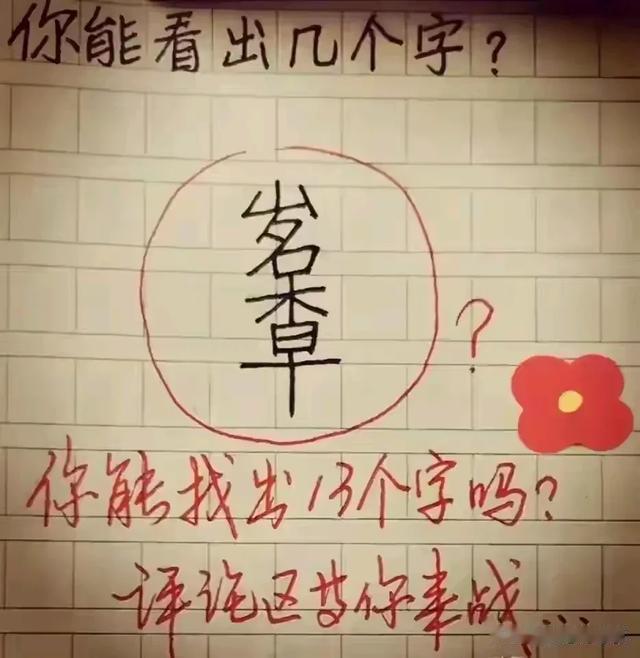 你能看出几个字?
?
你能找出13个字吗?
评论区等你来战....